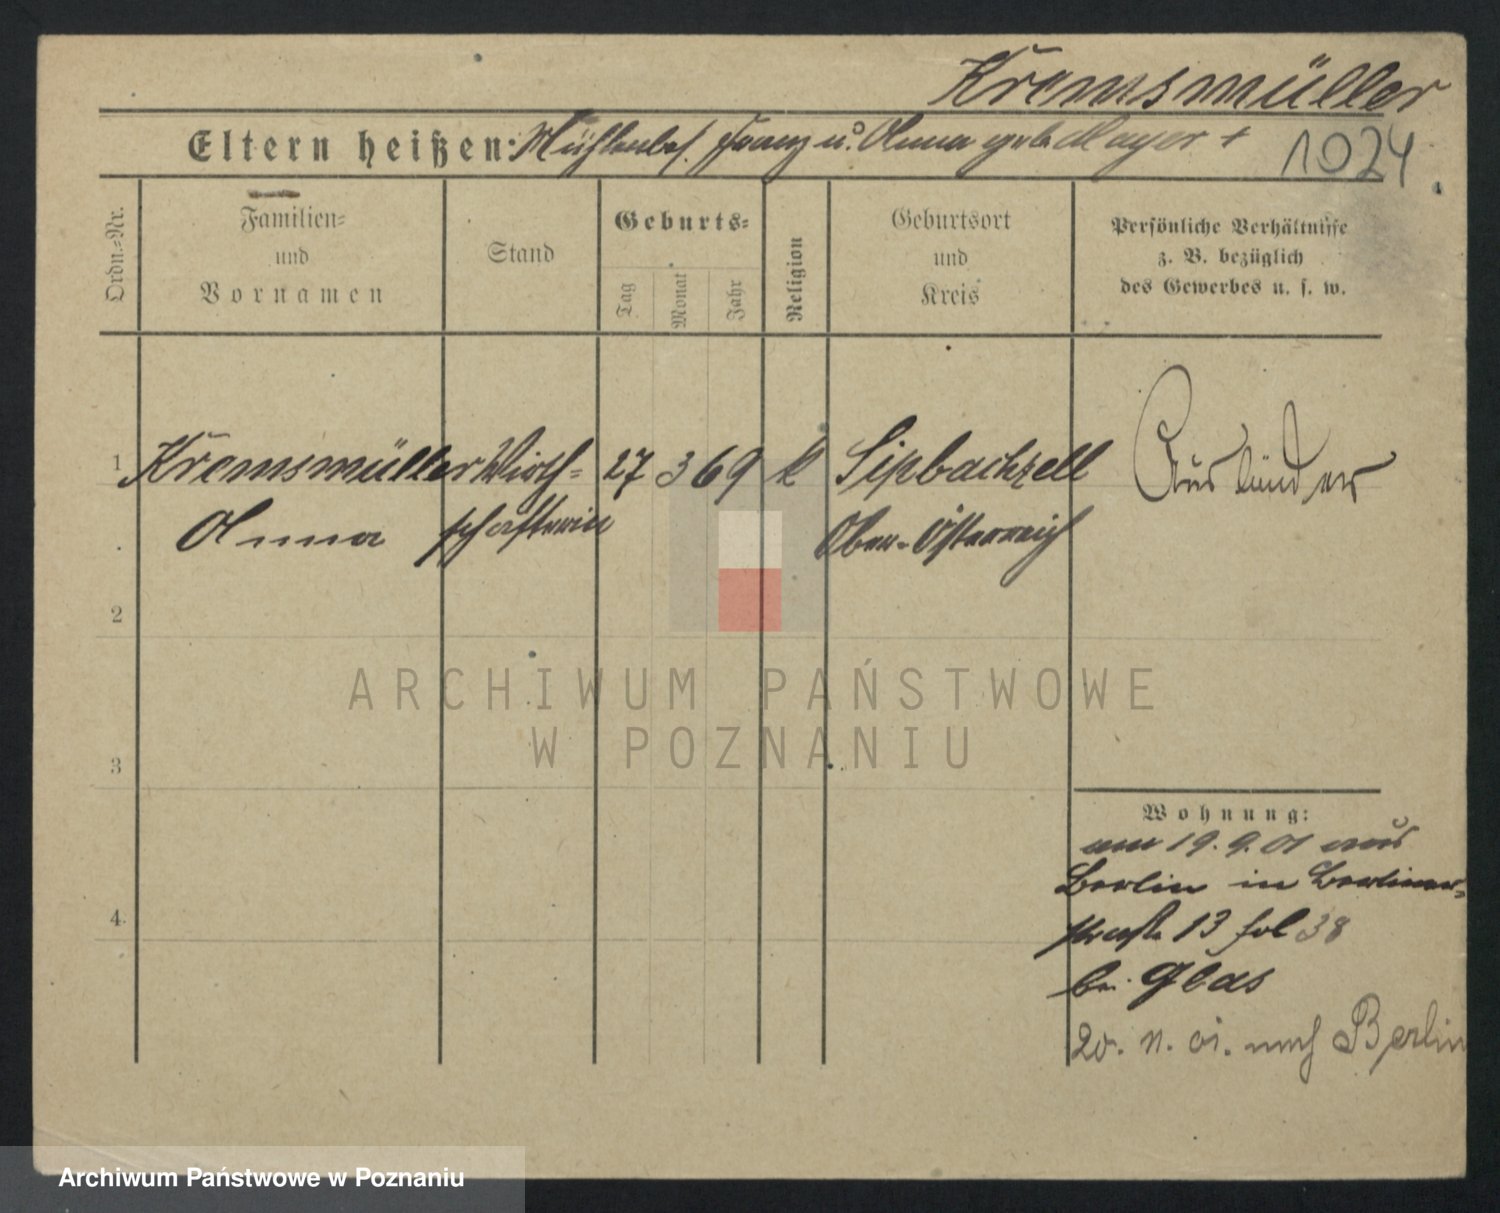 Kremsmüller
Eltern heißen: Mühlenbes. Franz u. Anna geb. Mayer +
1024
Ordn.-Nr.
Familien-
und
Vornamen
Stand
Geburts-
Tag
Monat
Jahr
Religion
Geburtsort
und
Kreis
Persönliche Verhältnisse
z. B. bezüglich
des Gewerbes u. s. w.
1 Kremsmüller Wirth- 27 3 69 k Sipbachzell Ausländer
Anna schafterin Ober-Österreich
2
3
4
ARCHIWUM PAŃSTWOWE
W POZNANIU
Wohnung:
am 19.9.01 aus
Berlin in Berliner-
straße 13 fol 38
bei Glas
20. 11. 01. nach Berlin
Archiwum Państwowe w Poznaniu